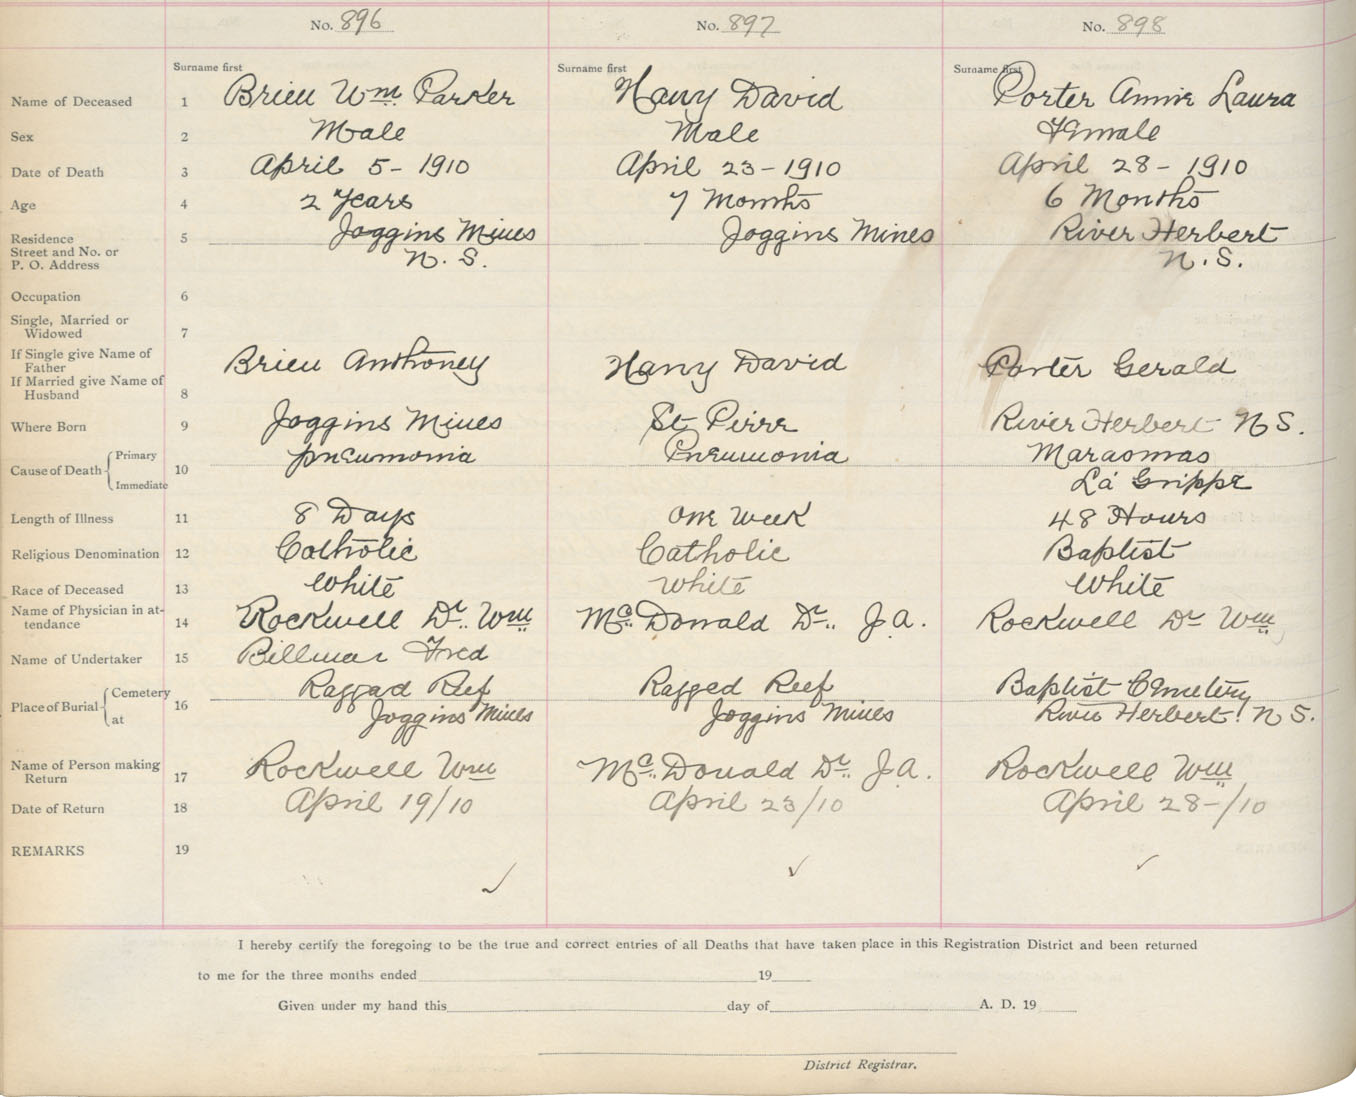 No. 896 No. 897 No. 898
Surname first Surname first Surname first
Name of Deceased 1 Brieu Wm. Parker Hany David Porter Annie Laura
Sex 2 Male Male Female
Date of Death 3 April 5 - 1910 April 23 - 1910 April 28 - 1910
Age 4 2 Years 7 Months 6 Months
Residence 5 Joggins Mines Joggins Mines River Herbert
Street and No. or N. S. N. S.
P. O. Address
Occupation 6
Single, Married or
Widowed 7
If Single give Name of Brieu Anthoney Hany David Porter Gerald
Father
If Married give Name of
Husband 8
Where Born 9 Joggins Mines St Pirre River Herbert N S.
Cause of Death Primary 10 pneumonia Pneumonia Marasmas
Immediate La Grippe
Length of Illness 11 8 Days One Week 48 Hours
Religious Denomination 12 Catholic Catholic Baptist
Race of Deceased 13 White White White
Name of Physician in at-
tendance 14 Rockwell Dr. Wm McDonald Dr. J.A. Rockwell Dr Wm
Name of Undertaker 15 Fred
Place of Burial Cemetery 16 Raggad Reef Ragged Reef Baptist Cemetery
at Joggins Mines Joggins Mines River Herbert. N S.
Name of Person making
Return 17 Rockwell Wm McDonald Dr. J.A. Rockwell Wm
Date of Return 18 April 19/10 April 23/10 April 28-/10
REMARKS 19
I hereby certify the foregoing to be the true and correct entries of all Deaths that have taken place in this Registration District and been returned
to me for the three months ended 19
Given under my hand this day of A. D. 19
District Registrar.